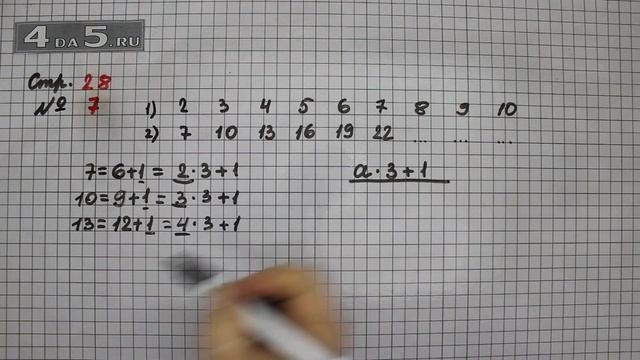 4 DA 5.RU
Стр. 28
№ 7
1) 2 3 4 5 6 7 8 9 10
2) 7 10 13 16 19 22 ... ... ...
7=6+1= 2·3+1
a·3+1
10=9+1=3·3+1
13=12+1=4·3+1